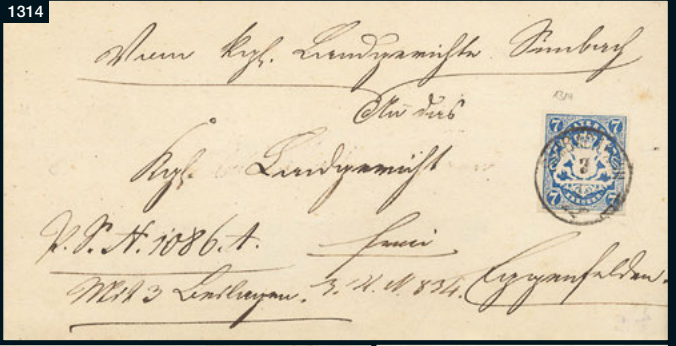 1314
Vom kgl. Landgerichte Simbach
1314
An das
7 7
Kgl. Landgericht
3
P. S. N. 1086. A.
frei
7 7
Mit 3 Beilagen. 3. U. N. 834. Eggenfelden.